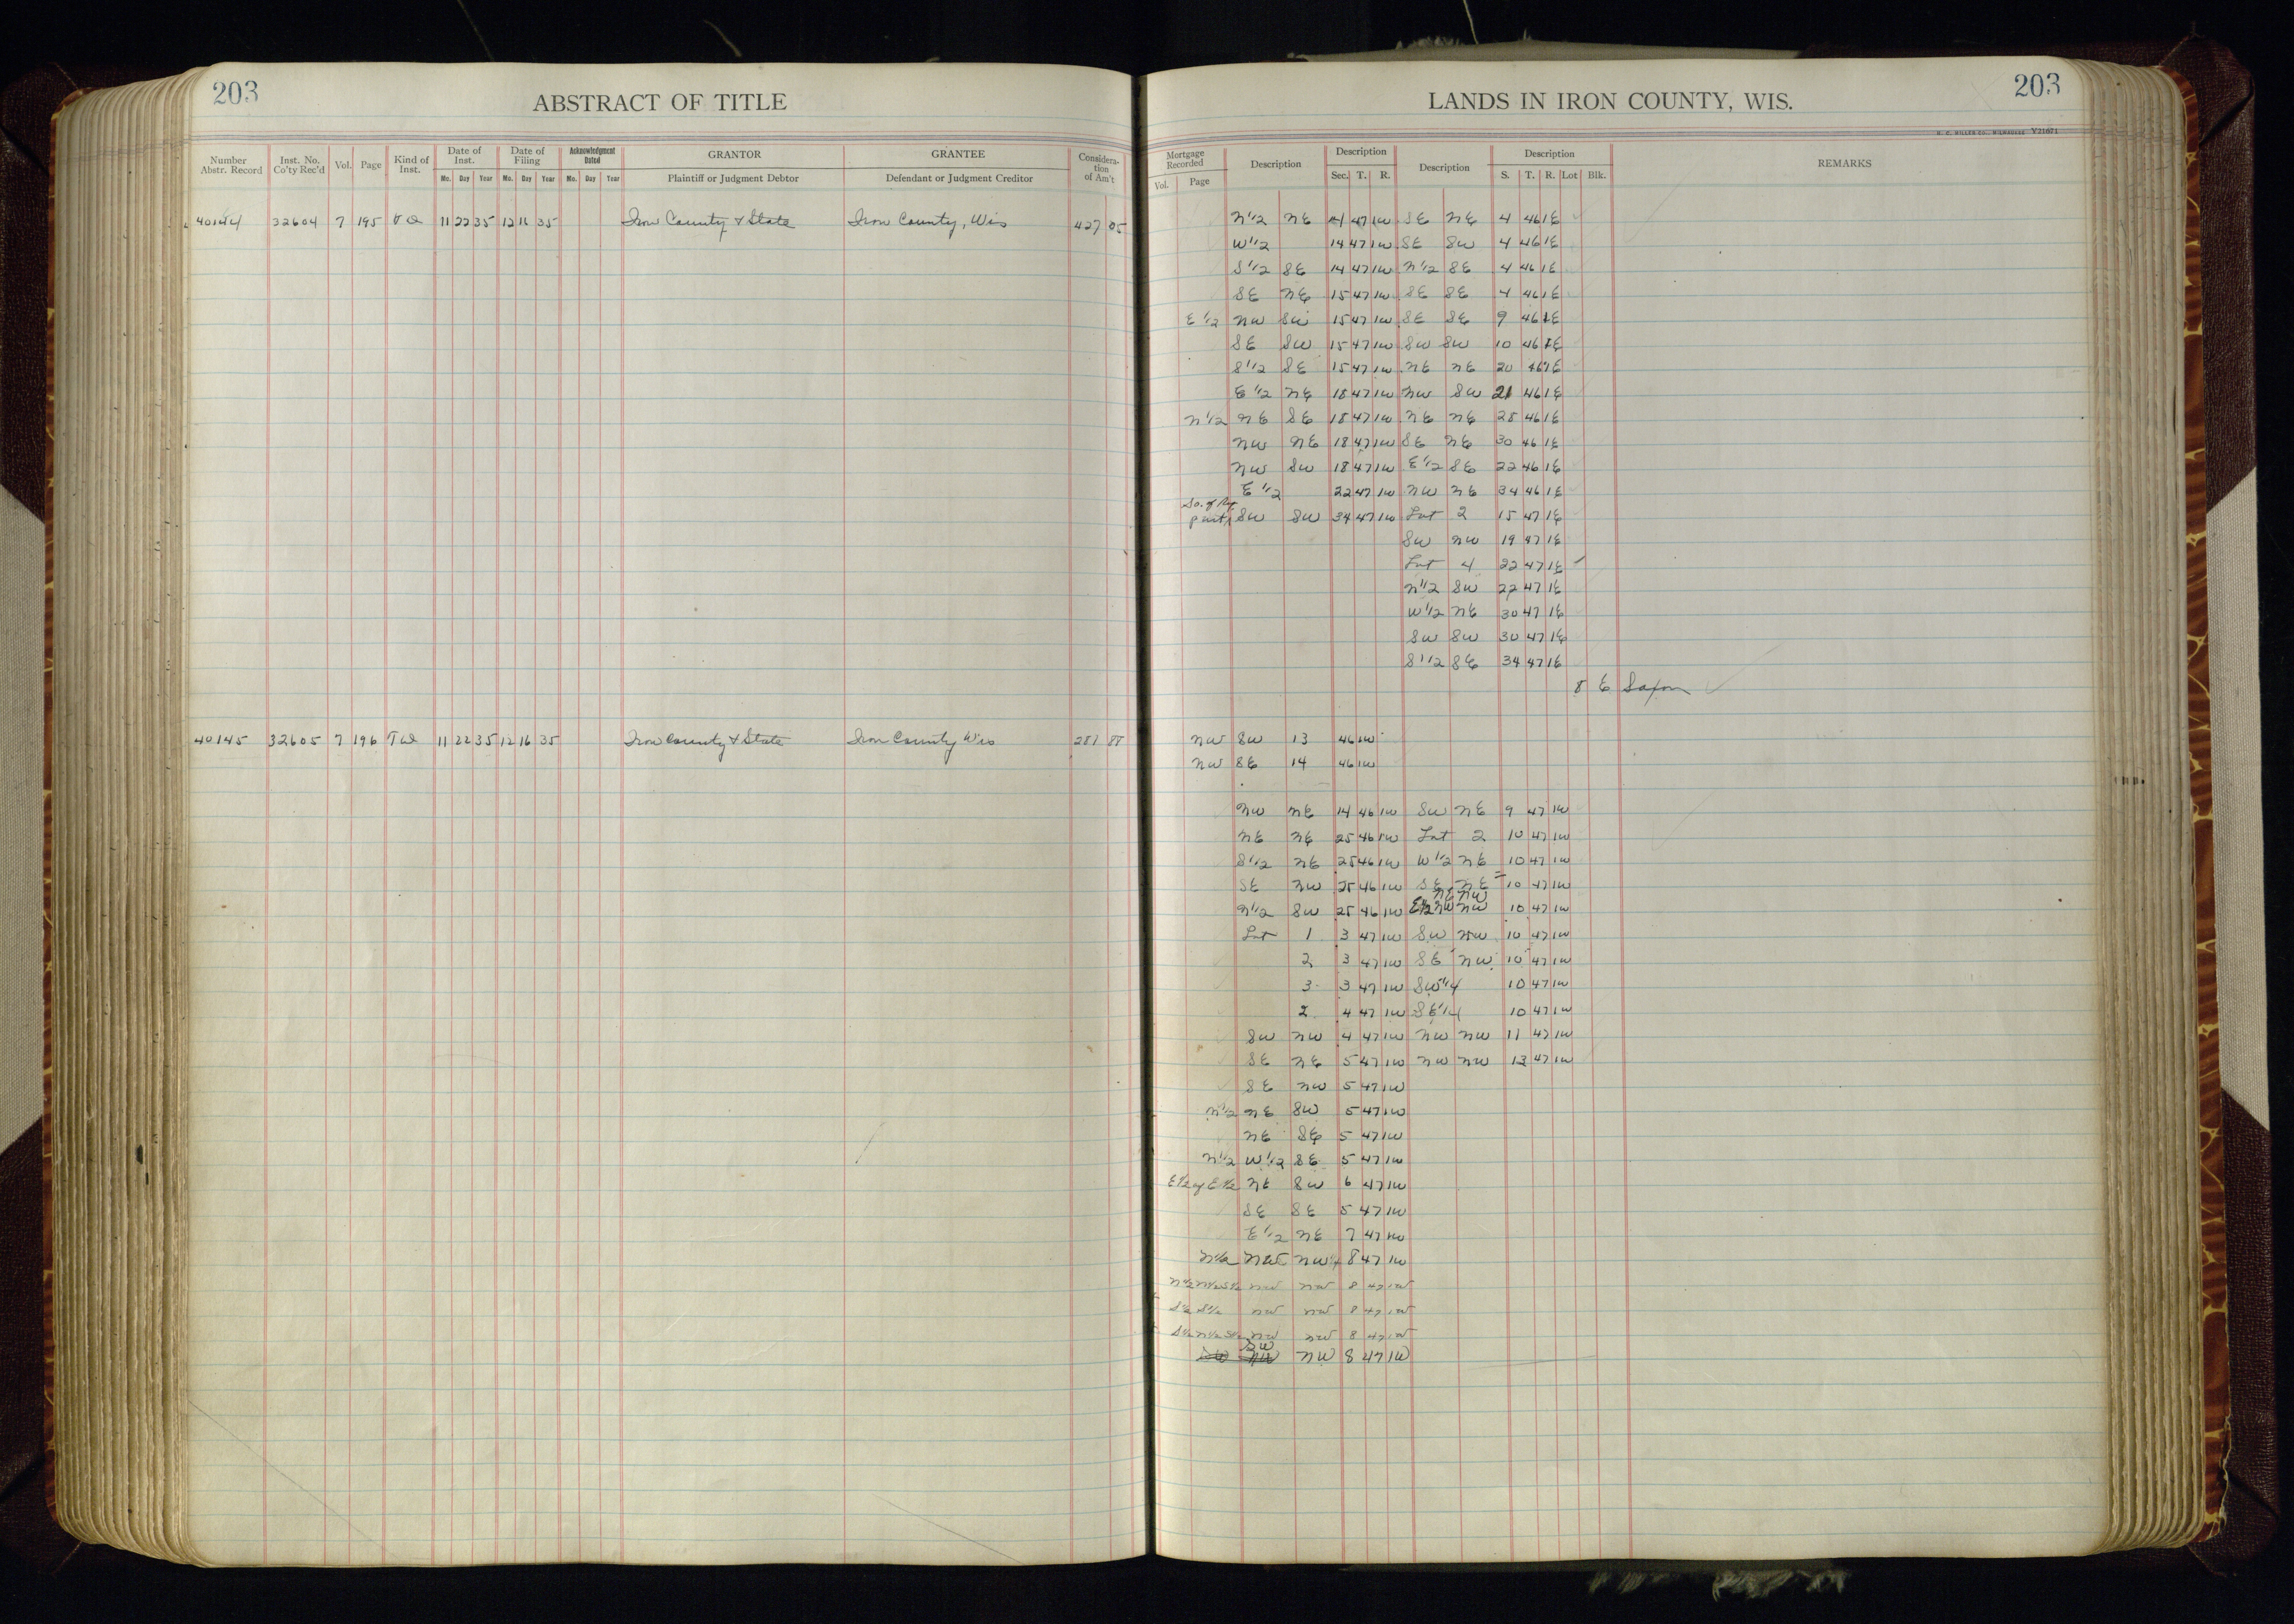 203
ABSTRACT OF TITLE
Number Abstr. Record Inst. No. Co'ty Rec'd Vol. Page Kind of Inst. Date of Inst. Mo. Day Year Date of Filing Mo. Day Year Acknowledgment Dated Mo. Day Year GRANTOR Plaintiff or Judgment Debtor GRANTEE Defendant or Judgment Creditor Consideration of Am't
40144 32604 7 195 11 22 35 12 11 35 Iron County & State Iron County, Wis 427 05
40145 32605 7 196 T D 11 22 35 12 16 35 Iron County & State Iron County Wis 281 88
LANDS IN IRON COUNTY, WIS.
203
H. C. MILLER CO., MILWAUKEE V21671
Mortgage Recorded Vol. Page Description Description Sec. T. R. Description Description S. T. R. Lot Blk. REMARKS
N 1/2 NE 47 1W SE NE 4 46 1E
W 1/2 14 47 1W SE SW 4 46 1E
S 1/2 SE 14 47 1W N 1/2 SE 4 46 1E
SE NE 15 47 1W SE SE 4 46 1E
E 1/2 NW SW 15 47 1W SE SE 9 46 1E
SE SW 15 47 1W SW SW 10 46 1E
S 1/2 SE 15 47 1W NE NE 20 46 1E
E 1/2 NE 18 47 1W NW SW 21 46 1E
N 1/2 NE SE 18 47 1W NE NE 28 46 1E
NW NE 18 47 1W SE NE 30 46 1E
NW SW 18 47 1W E 1/2 SE 22 46 1E
E 1/2 22 47 1W NW NE 34 46 1E
So. of
part SW SW 34 47 1W Lot 2 15 47 1E
SW NW 19 47 1E
Lot 4 22 47 1E
N 1/2 SW 22 47 1E
W 1/2 NE 30 47 1E
SW SW 30 47 1E
S 1/2 SE 34 47 1E
8 E Saxon
NW SW 13 46 1W
NW SE 14 46 1W
NW NE 14 46 1W SW NE 9 47 1W
NE NE 25 46 1W Lot 2 10 47 1W
S 1/2 NE 25 46 1W W 1/2 NE 10 47 1W
SE NW 25 46 1W SE NE 10 47 1W
NE NW
N 1/2 SW 25 46 1W E 1/2 NW NW 10 47 1W
Lot 1 3 47 1W SW NW 10 47 1W
2 3 47 1W SE NW 10 47 1W
3 3 47 1W SW 1/4 10 47 1W
2 4 47 1W SE 1/4 10 47 1W
SW NW 4 47 1W NW NW 11 47 1W
SE NE 5 47 1W NW NW 13 47 1W
SE NW 5 47 1W
N 1/2 NE SW 5 47 1W
NE SE 5 47 1W
N 1/2 W 1/2 SE 5 47 1W
E 1/2 of E 1/2 NE SW 6 47 1W
SE SE 5 47 1W
E 1/2 NE 7 47 1W
N 1/2 NW NW 8 47 1W
N 1/2 N 1/2 S 1/2 NW NW 8 47 1W
S 1/2 S 1/2 NW NW 8 47 1W
S 1/2 N 1/2 S 1/2 NW NW 8 47 1W
SW
NW 8 47 1W